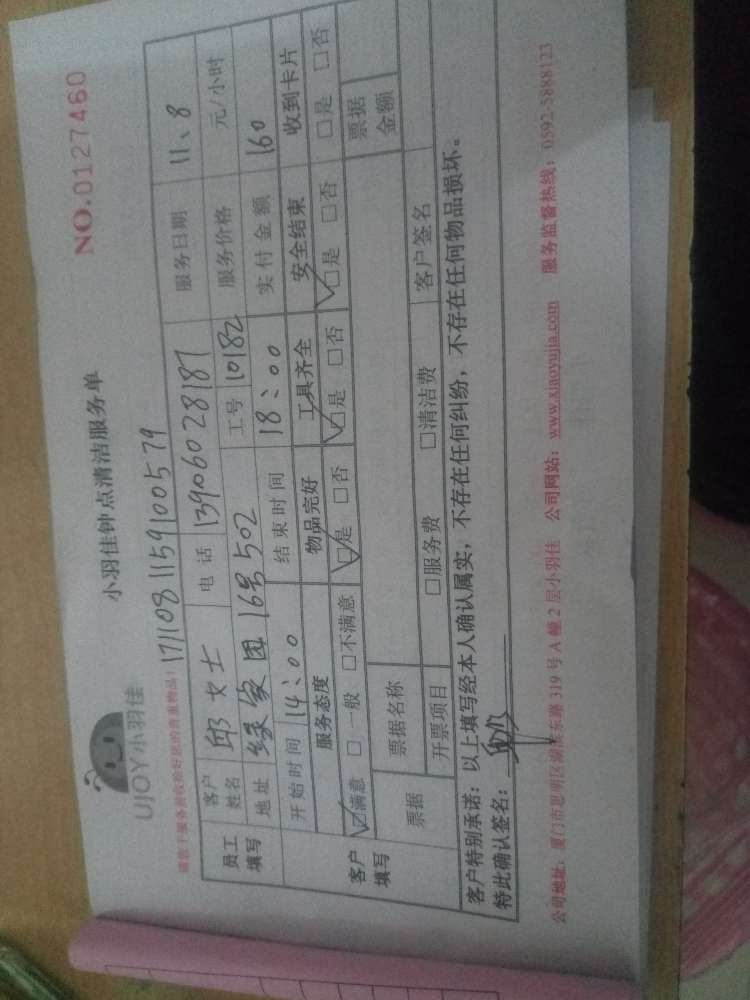 UJOY小羽佳
小羽佳钟点清洁服务单
NO.0127460
请您于服务前收拾好您的贵重物品!
1711081159100579
员工填写
客户姓名 邱女士 电话 13906028187 服务日期 11、8
地址 绿家园16号502 工号 10182 服务价格 元/小时
开始时间 14:00 结束时间 18:00 实付金额 160
客户填写
服务态度 物品完好 工具齐全 安全结束 收到卡片
☑满意 □一般 □不满意 ☑是 □否 ☑是 □否 ☑是 □否 □是 □否
票据 票据名称 票据金额
开票项目 □服务费 □清洁费 客户签名
客户特别承诺:以上填写经本人确认属实,不存在任何纠纷,不存在任何物品损坏。
特此确认签名:
公司地址:厦门市思明区湖滨东路319号A幢2层小羽佳 公司网站:www.xiaoyujia.com 服务监督热线:0592-5888123